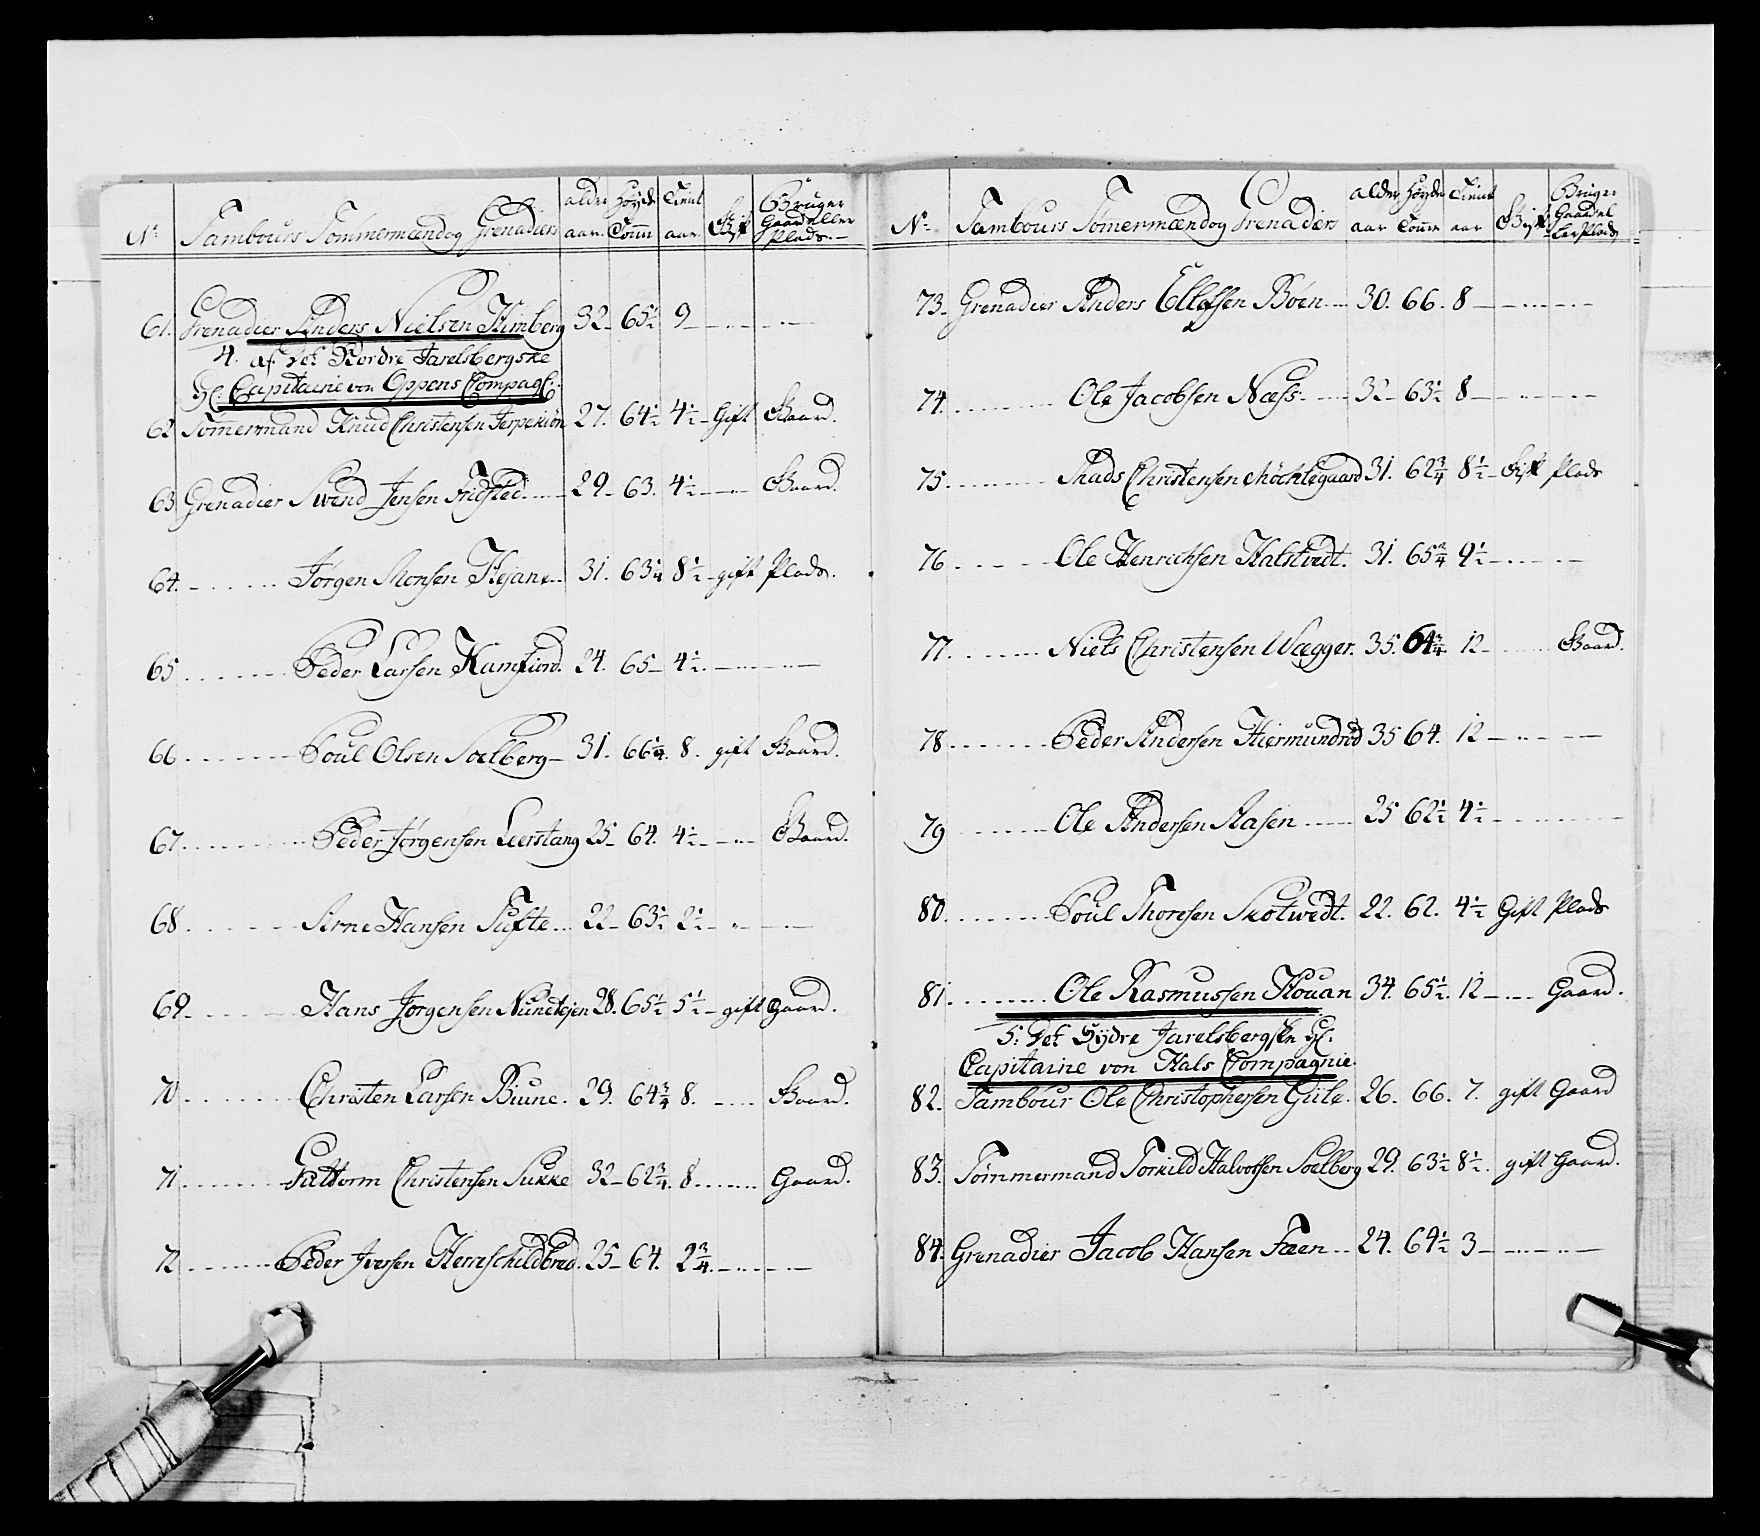 No. Tambours Tømmermænd og Grenadiers alder aar. Høyde Tomm Tient aar Gift Bruger Gaard eller Plads.
61. Grenadier Anders Nielsen Himberg 32 65½ 9
4. af det Nordre Jarelsbergske
Capitaine von Oppens Compag:
62 Tømermand Knud Christensen 27. 64½ 4½ Gift Gaard.
63 Grenadier Svend Jensen 29 63. 4½ Gaard.
64. Jørgen Monsen 31. 63¼ 8½ gift Plads.
65 Peder Larsen Kamfiord. 24. 65 4½.
66 Poul Olsen Soelberg 31. 66¼. 8. gift Gaard.
67. Peder Jørgensen Leerstang 25 64. 4½ Gaard.
68. Arne Hansen Tufte 22 63½ 2½
69. Hans Jørgensen 28. 65½ 5½ gift Gaard.
70 Christen Larsen Biune. 29. 64¾ 8. Gaard.
71 Guttorm Christensen Sukke 32 62¾. 8 Gaard.
72 Peder Iversen 25 64. 2¾.
No. Tambours Tømermænd og Grenadiers alder aar Høyde Tomm Tient aar Gift Bruger Gaard el ler Plads
73. Grenadier Anders Ellefsen Böen 30. 66. 8
74. Ole Jacobsen Næss 32 63½ 8
75. Mads Christensen 31. 62¾ 8½ Gift Plads
76 Ole Henrichsen Halstvedt. 31. 65¾ 9½
77. Niels Christensen Wægger. 35. 64¾ 12 Gaard.
78. Peder Andersen Hiermundrød 35 64. 12
79 Ole Andersen Aasen 25 62½ 4½
80. Poul Thoresen Skotvedt. 22. 62. 4½ Gift Plads
81. Ole Rasmussen Houan 34. 65½. 12 Gaard.
5: Det Sydre Jarelsbergske
Capitaine von Hals Compagnie.
82. Tambour Ole Christophersen Gule. 26. 66. 7. gift Gaard
83. Tømmermand Torkild Halvorsen Soelberg 29. 63½ 8½. gift Gaard.
84. Grenadier Jacob Hansen Fæen 24. 64½ 3